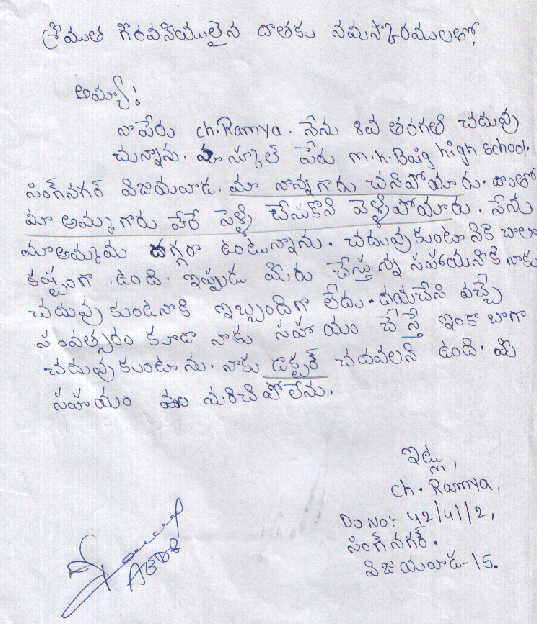 శ్రీమతి గౌరవనీయులైన దాతకు నమస్కారములతో,
అమ్మా!
నా పేరు ch.Ramya. నేను 8వ తరగతి చదువు
చున్నాను. మా స్కూల్ పేరు M.K.Baig high school.
సింగ్‌నగర్ విజయవాడ. మా నాన్నగారు చనిపోయారు. దాంతో
మా అమ్మగారు వేరే పెళ్ళి చేసుకొని వెళ్ళిపోయారు. నేను
మా అమ్మమ్మ దగ్గర ఉంటున్నాను. చదువుకుంటానికి చాలా
కష్టంగా ఉంది. ఇప్పుడు మీరు చేస్తున్న సహాయానికి నాకు
చదువు కుండనాకి ఇబ్బందిగా లేదు. దయచేసి వచ్చే
సంవత్సరం కూడా నాకు సహాయం చేస్తే ఇంకా బాగా
చదువుకుంటాను. నాకు డాక్టర్ చదవలని ఉంది. మీ
సహాయం మరిచిపోలేను.
ఇట్లు,
ch. Ramya,
Do No:- 42/41/2,
సింగ్‌నగర్.
విజయవాడ-15.